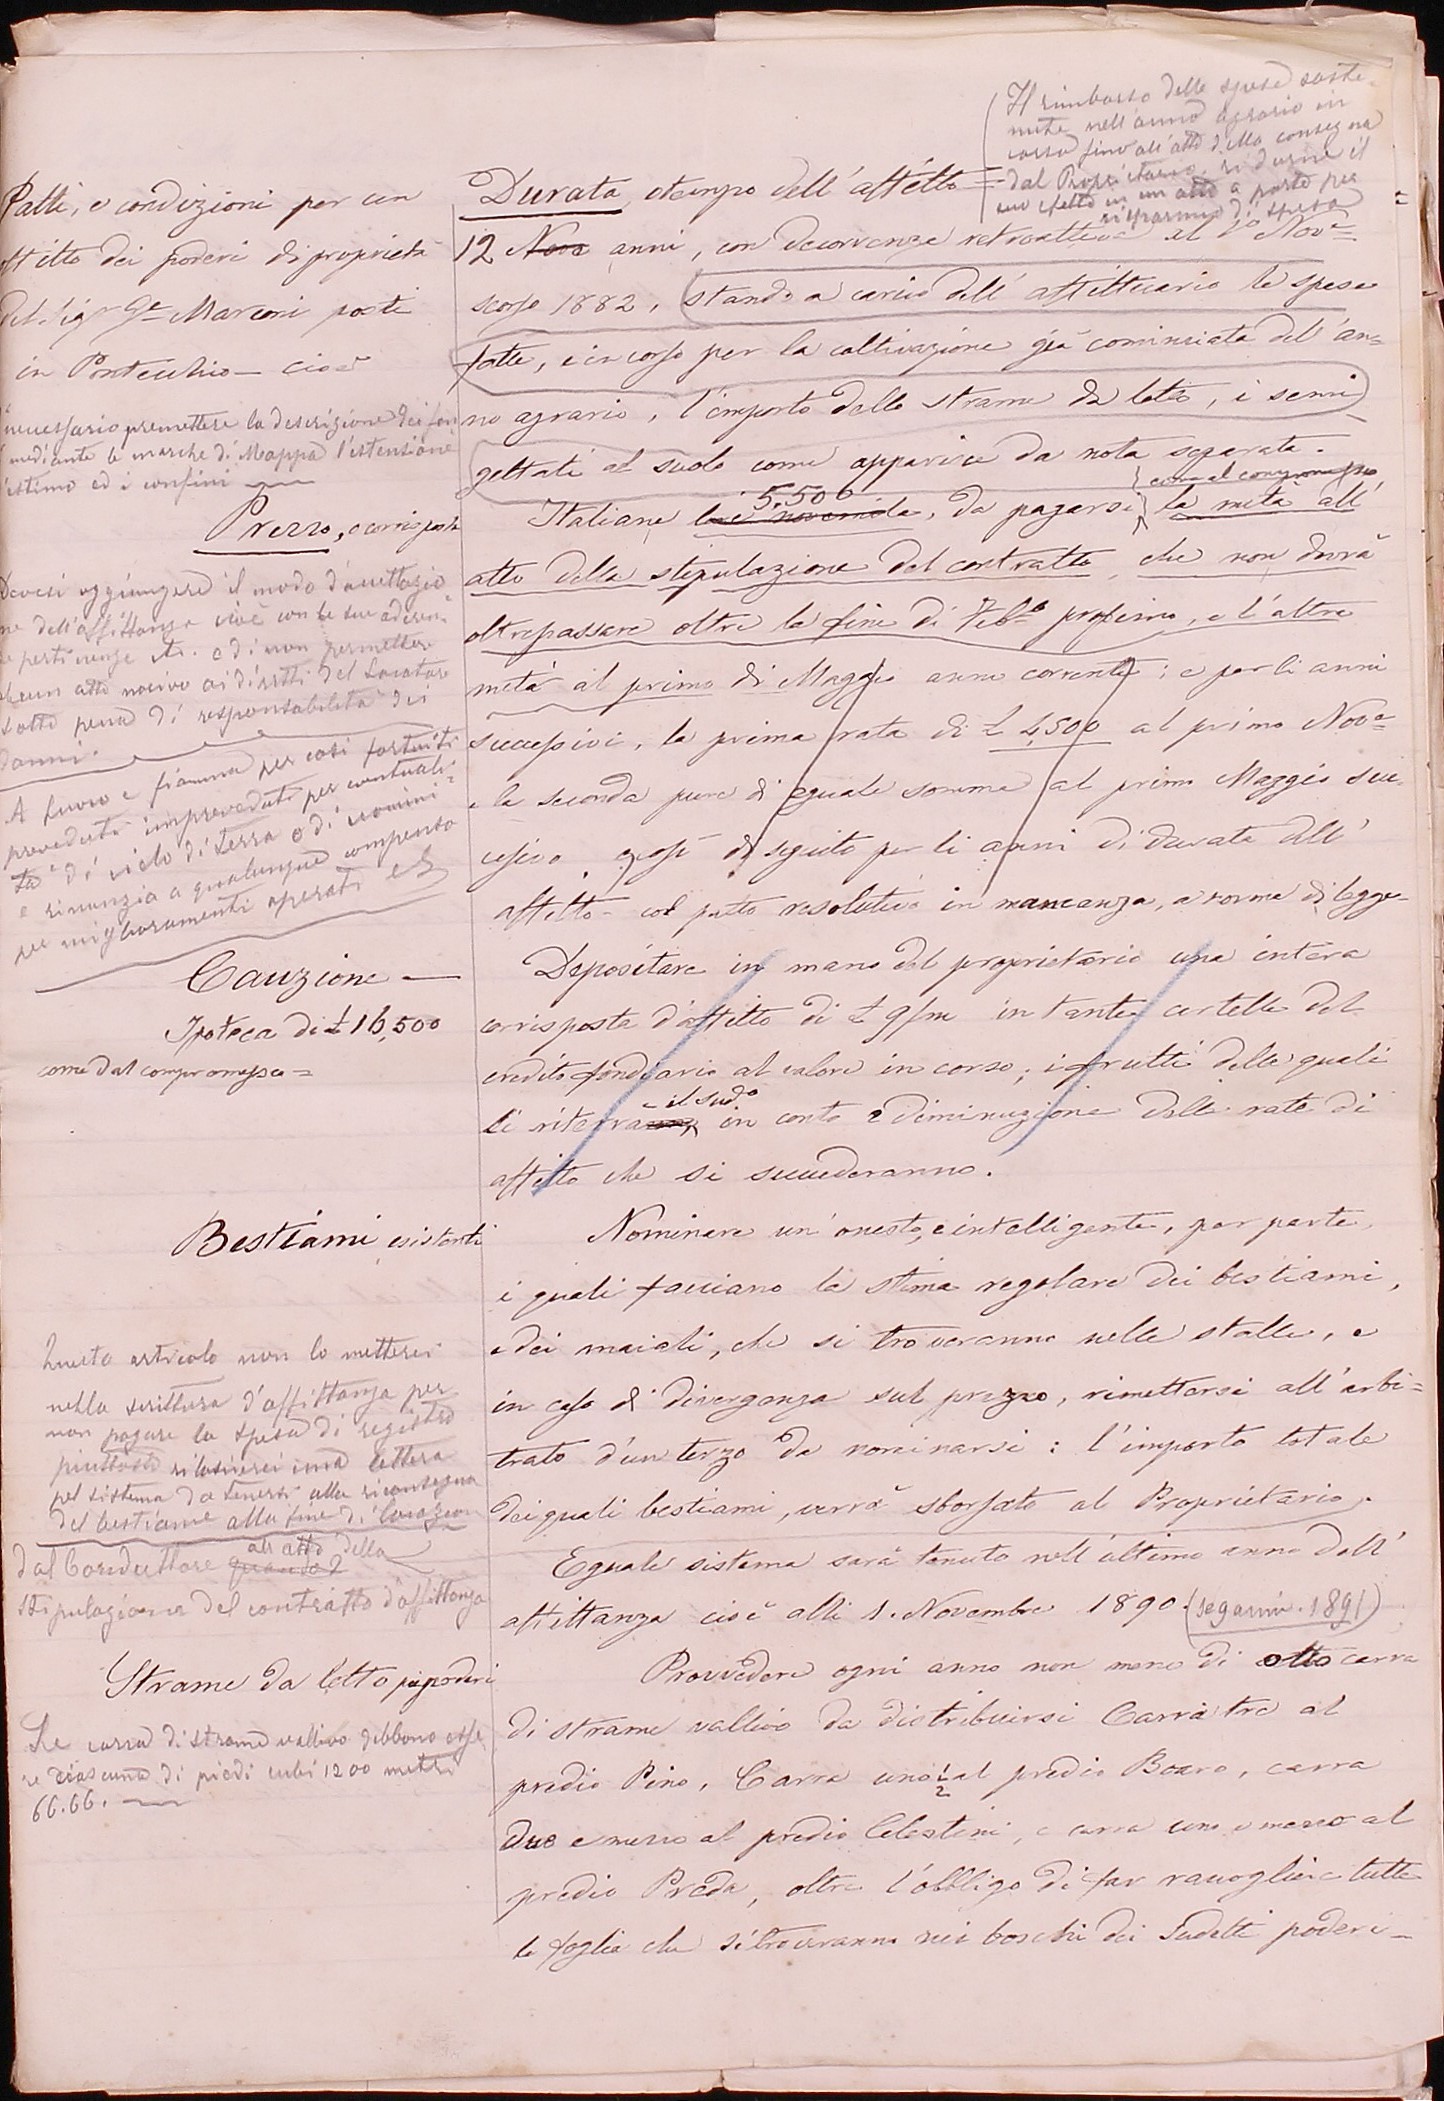 Il rimborso delle spese soste-
nute nell'anno agrario in
corso fino all'atto della consegna
dal Proprietario, si darà il
suo effetto in un atto a parte per
risparmio di spesa
Patti, e condizioni per un
affitto dei poderi di proprietà
del Sigr Ge Marconi posti
in Pontecchio — cioè
necessario premettere la descrizione dei fon
mediante le marche di Mappa l'estensione
l'estimo ed i confini
Durata, e tempo dell'affitto =
12 Nove anni, con decorrenza retroattiva al 1o Nove=
scorso 1882, stando a carico dell'affittuario le spese
fatte, e in corso per la coltivazione già cominciata dell'an=
no agrario, l'importo dello strame da letto, i semi
gettati al suolo come apparisce da nota separata.
Prezzo, e corrisposta
Devesi aggiungere il modo d'accettazio
ne dell'affittanza cioè con le sue aderen=
ze pertinenze etc. e di non permettere
alcun atto nocivo ai diritti del Locatore
sotto pena di responsabilità dei
danni.
A fuoco e fiamma per casi fortuiti
preveduti impreveduti per eventuali=
tà di cielo di terra e di uomini
e rinunzia a qualunque compenso
per miglioramenti operati
5,500
Italiane lire novemila, da pagarsi la metà all'
atto della stipulazione del contratto, che non dovrà
oltrepassare oltre la fine di Febbo prossimo, e l'altra
metà al primo di Maggio anno corrente; e per li anni
successivi, la prima rata di £ 4,500 al primo Nove=
e la seconda pure di eguale somma al primo Maggio suc
cessivo e così di seguito per li anni di durata dell'
affitto - col patto resolutivo in mancanza, a norma di legge-
Cauzione —
Ipoteca di £ 16,500
come dal compromesso =
Depositare in mano del proprietario una intera
corrisposta d'affitto di £ 9/m in tante cartelle del
credito fondiario al valore in corso; i frutti delle quali
il sudo
si riterranno in conto e diminuzione delle rate di
affitto che si succederanno.
Bestiami esistenti
Nominare un'onesto, e intelligente, per parte,
i quali facciano la stima regolare dei bestiami,
e dei maiali, che si troveranno nelle stalle, e
in caso di divergenza sul prezzo, rimettersi all'arbi=
trato d'un terzo da nominarsi: l'importo totale
dei quali bestiami, verrà sborsato al Proprietario.
Questo articolo non lo metterei
nella scrittura d'affittanza per
non pagare la spesa di registro
piuttosto rilascierei una lettera
pel sistema da tenersi alla riconsegna
del bestiame alla fine di locazione
all'atto della
dal Conduttore quando
stipulazione del contratto d'affittanza
Eguale sistema sarà tenuto nell'ultimo anno dell'
affittanza cioè alli 1. Novembre 1890. (segarini. 1891)
Strame da letto pei poderi
Le carra di strame vallivo debbono esse
re ciascuna di piedi cubi 1200 metri
66.66.
Provvedere ogni anno non meno di otto carra
di strame vallivo da distribuirsi Carra tre al
predio Pino, Carra uno ½ al predio Boaro, carra
due e mezzo al predio Celestini, e carra uno e mezzo al
predio Preda, oltre l'obbligo di far raccogliere tutte
le foglie che si troveranno nei boschi dei sudetti poderi -